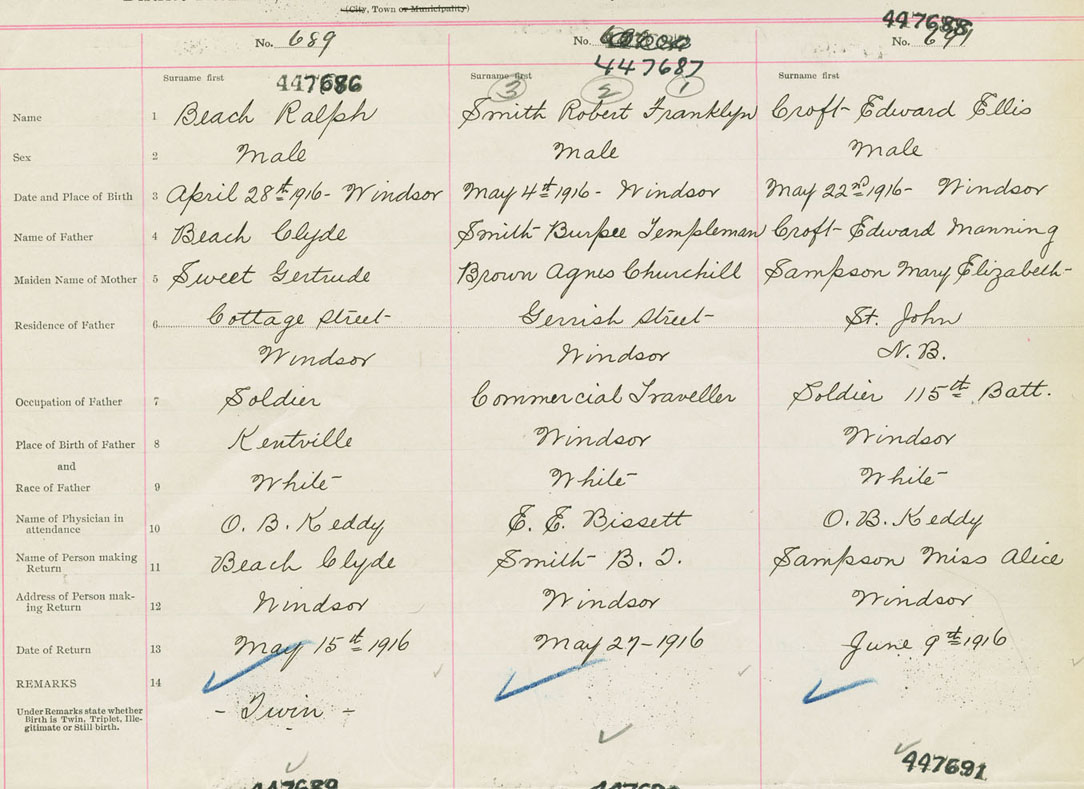 (City, Town or Municipality)
447688
No. 689
No.
No. 691
447687
Surname first
447686
Surname first
3 2 1
Surname first
Name 1 Beach Ralph
Smith Robert Franklyn
Croft Edward Ellis
Sex 2 Male
Male
Male
Date and Place of Birth 3 April 28th 1916 - Windsor
May 4th 1916 - Windsor
May 22nd 1916 - Windsor
Name of Father 4 Beach Clyde
Smith Burpee Templeman
Croft Edward Manning
Maiden Name of Mother 5 Sweet Gertrude
Brown Agnes Churchill
Sampson Mary Elizabeth
Residence of Father 6 Cottage Street
Gerrish Street
St. John
Windsor
Windsor
N.B.
Occupation of Father 7 Soldier
Commercial Traveller
Soldier 115th Batt.
Place of Birth of Father 8 Kentville
Windsor
Windsor
and
Race of Father 9 White
White
White
Name of Physician in
attendance 10 O. B. Keddy
E. E. Bissett
O. B. Keddy
Name of Person making
Return 11 Beach Clyde
Smith B. T.
Sampson Miss Alice
Address of Person mak-
ing Return 12 Windsor
Windsor
Windsor
Date of Return 13 May 15th 1916
May 27 - 1916
June 9th 1916
REMARKS 14
Under Remarks state whether
Birth is Twin, Triplet, Ille-
gitimate or Still-birth.
- Twin -
447691
447689